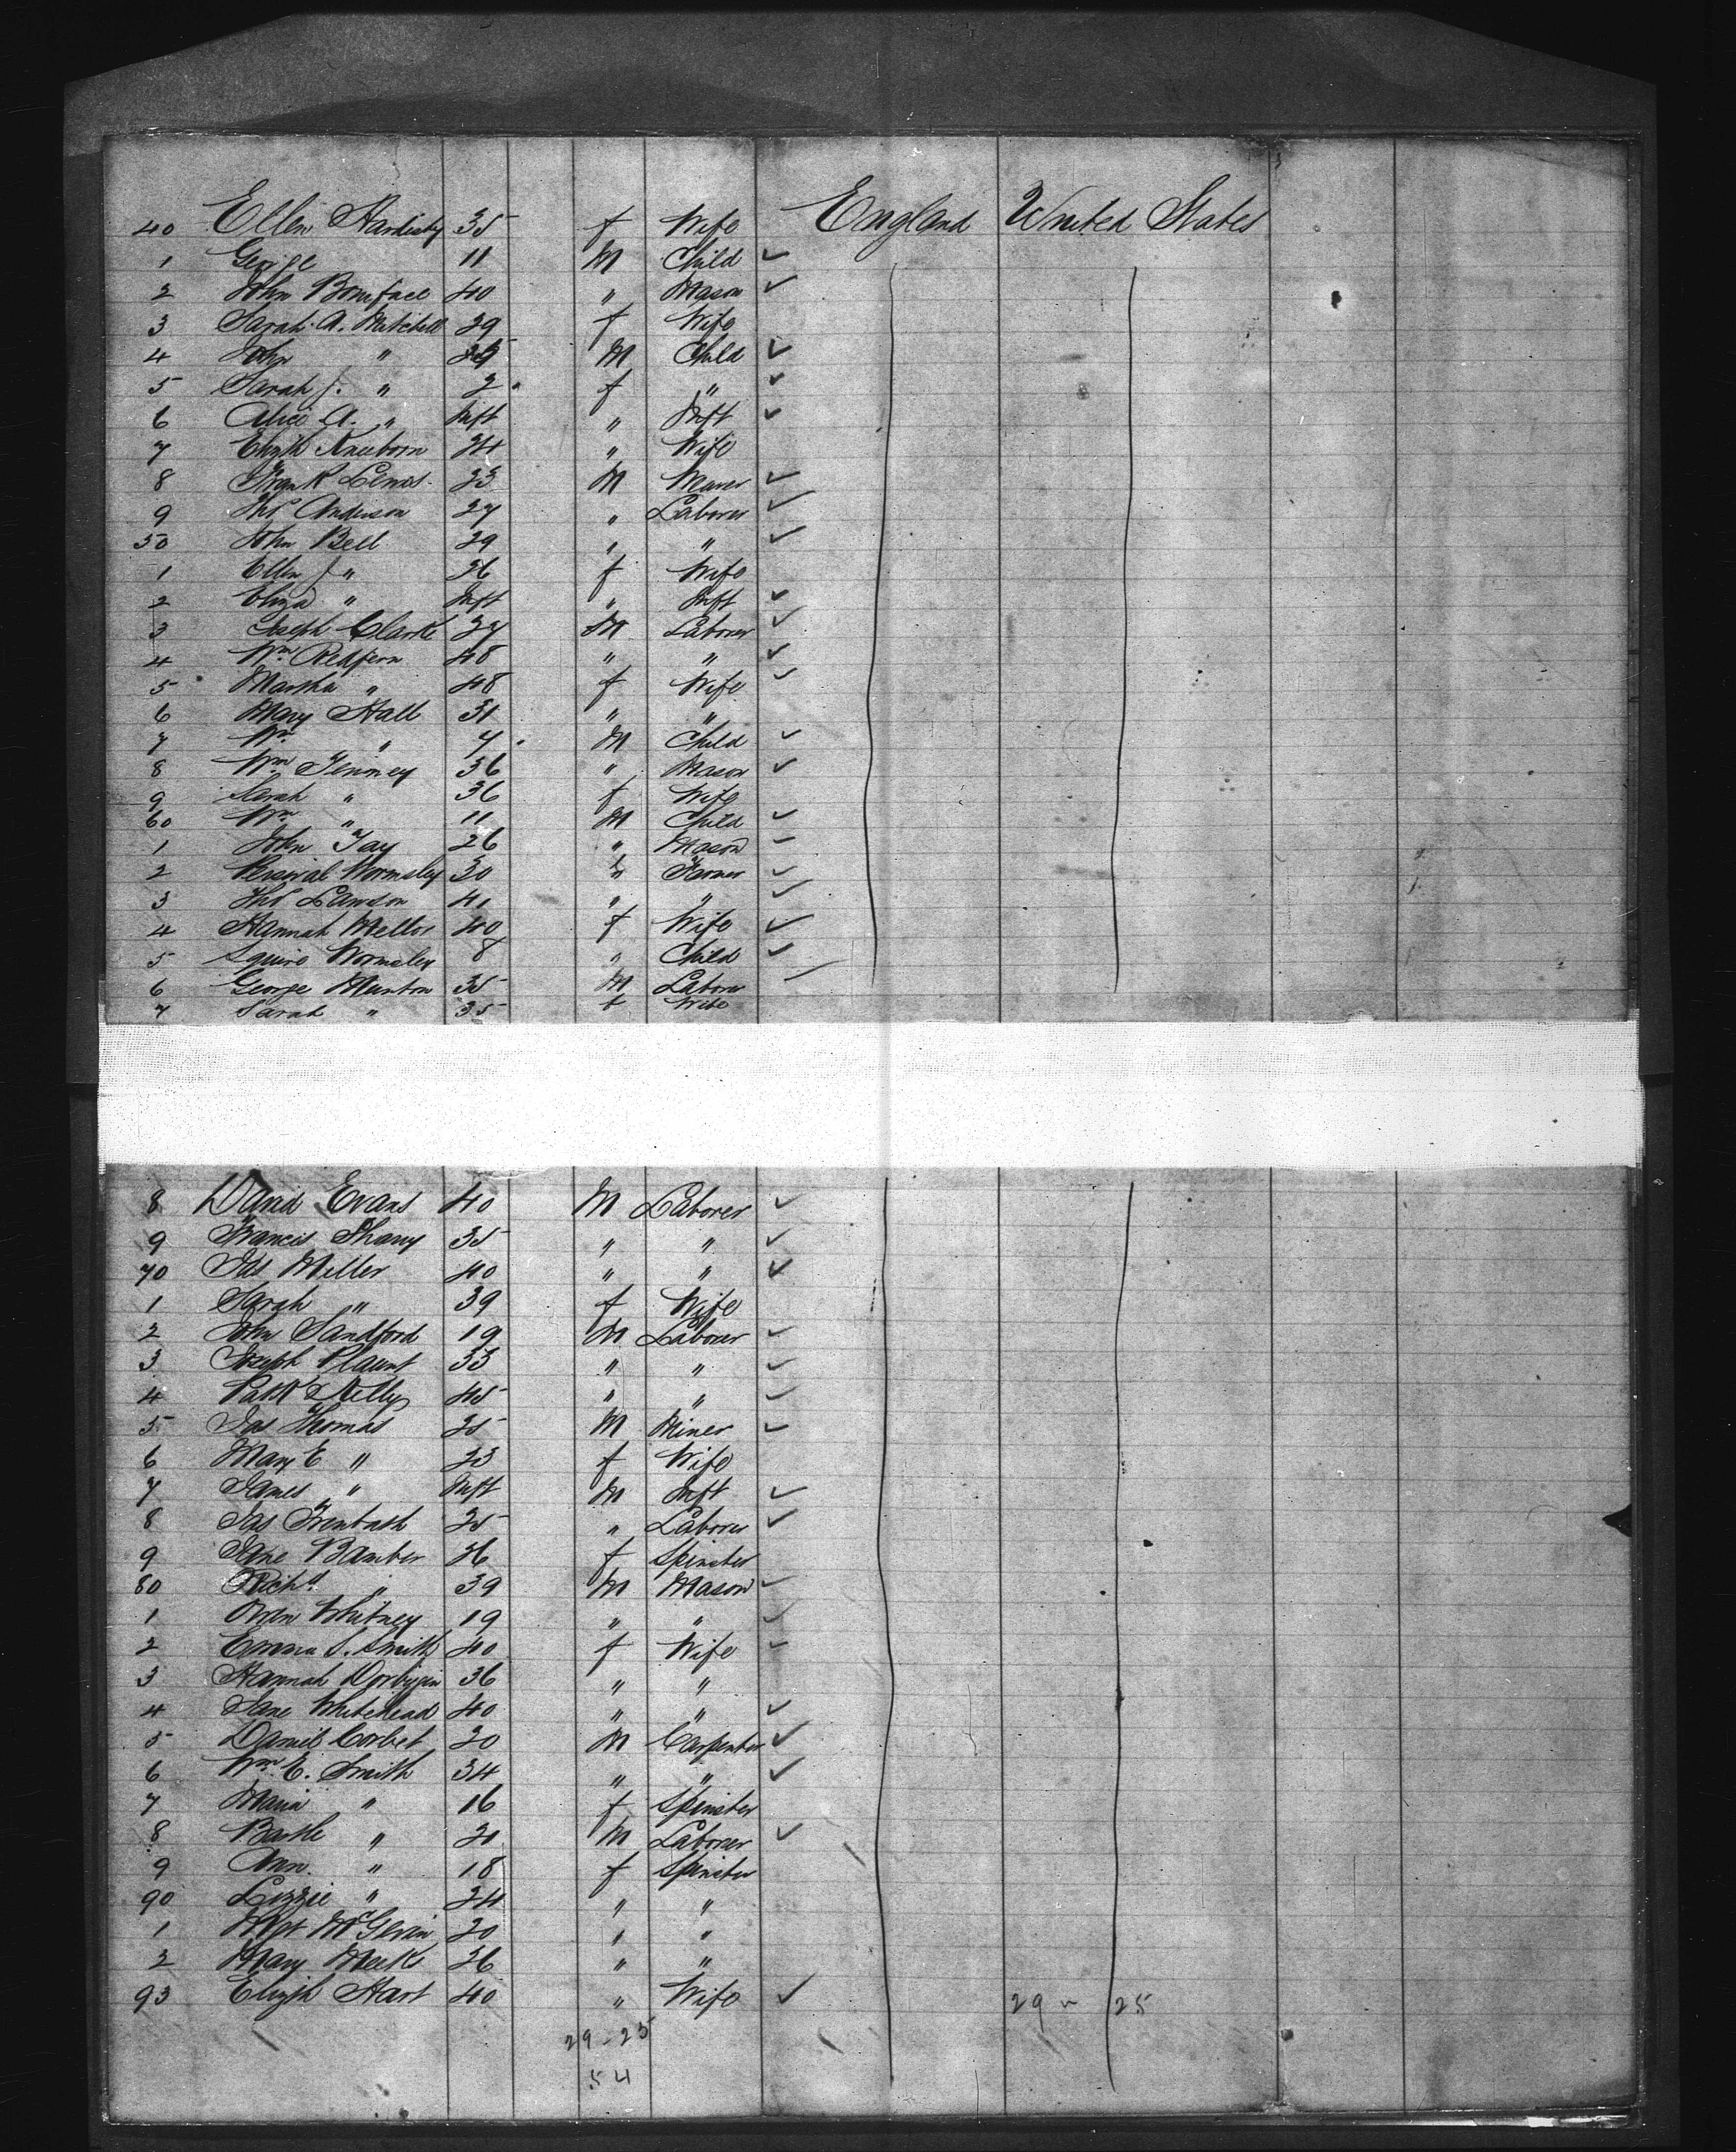 40 Ellen Hardisty 35 f Wife England United States
1 George 11 M Child ✓
2 John Boniface 40 " Mason ✓
3 Sarah A. Mitchell 29 f Wife
4 John " M Child ✓
5 Sarah J. " 2 f " ✓
6 Alice A. " Inft " Inft ✓
7 Elizth 24 " Wife
8 Frank Lewis 23 M ✓
9 Thos Anderson 27 " Laborer ✓
50 John Bell 29 " " ✓
1 Ellen J " 26 f Wife
2 Eliza " Inft " Inft ✓
3 Joseph Clark 27 M Laborer ✓
4 Wm Redfern 48 " " ✓
5 Martha " 48 f Wife ✓
6 Mary Hall 31 " "
7 Wm " 7 M Child ✓
8 Wm Tenney 36 " Mason ✓
9 Sarah " 36 f Wife
60 Wm " 11 M Child ✓
1 John Tay 26 " Mason ✓
2 Percival Wormsley 30 " Farmer ✓
3 Thos Lawson 41 " " ✓
4 Hannah Mellor 40 f Wife ✓
5 Squire Wormsley 8 " Child ✓
6 George Munton 35 M Laborer
7 Sarah " 35 f Wife
8 David Evans 40 M Laborer ✓
9 Francis 35 " " ✓
70 Jas Miller 40 " " ✓
1 Sarah " 39 f Wife
2 John Sandford 19 M Laborer ✓
3 Joseph Plaunt 33 " " ✓
4 Patk Kelly 45 " " ✓
5 Jas Thomas 25 M Miner ✓
6 Mary E " 23 f Wife
7 James " Inft M Inft ✓
8 Jas Trenbath 25 " Laborer ✓
9 Jane Bamber 26 f Spinster
80 Richd " 39 M Mason ✓
1 Owen Whitney 19 " " ✓
2 Emma S. Smith 40 f Wife ✓
3 Hannah 36 " "
4 Jane Whitehead 40 " " ✓
5 Daniel Corbet 20 M Carpenter ✓
6 Wm E. Smith 34 " " ✓
7 Maria " 16 f Spinster
8 Bartle " 21 M Laborer ✓
9 Ann " 18 f Spinster
90 Lizzie " 24 " "
1 Mgt 20 " "
2 Mary Meek 26 " "
93 Elizth Hart 40 " Wife ✓ 29 25
29 - 25
54